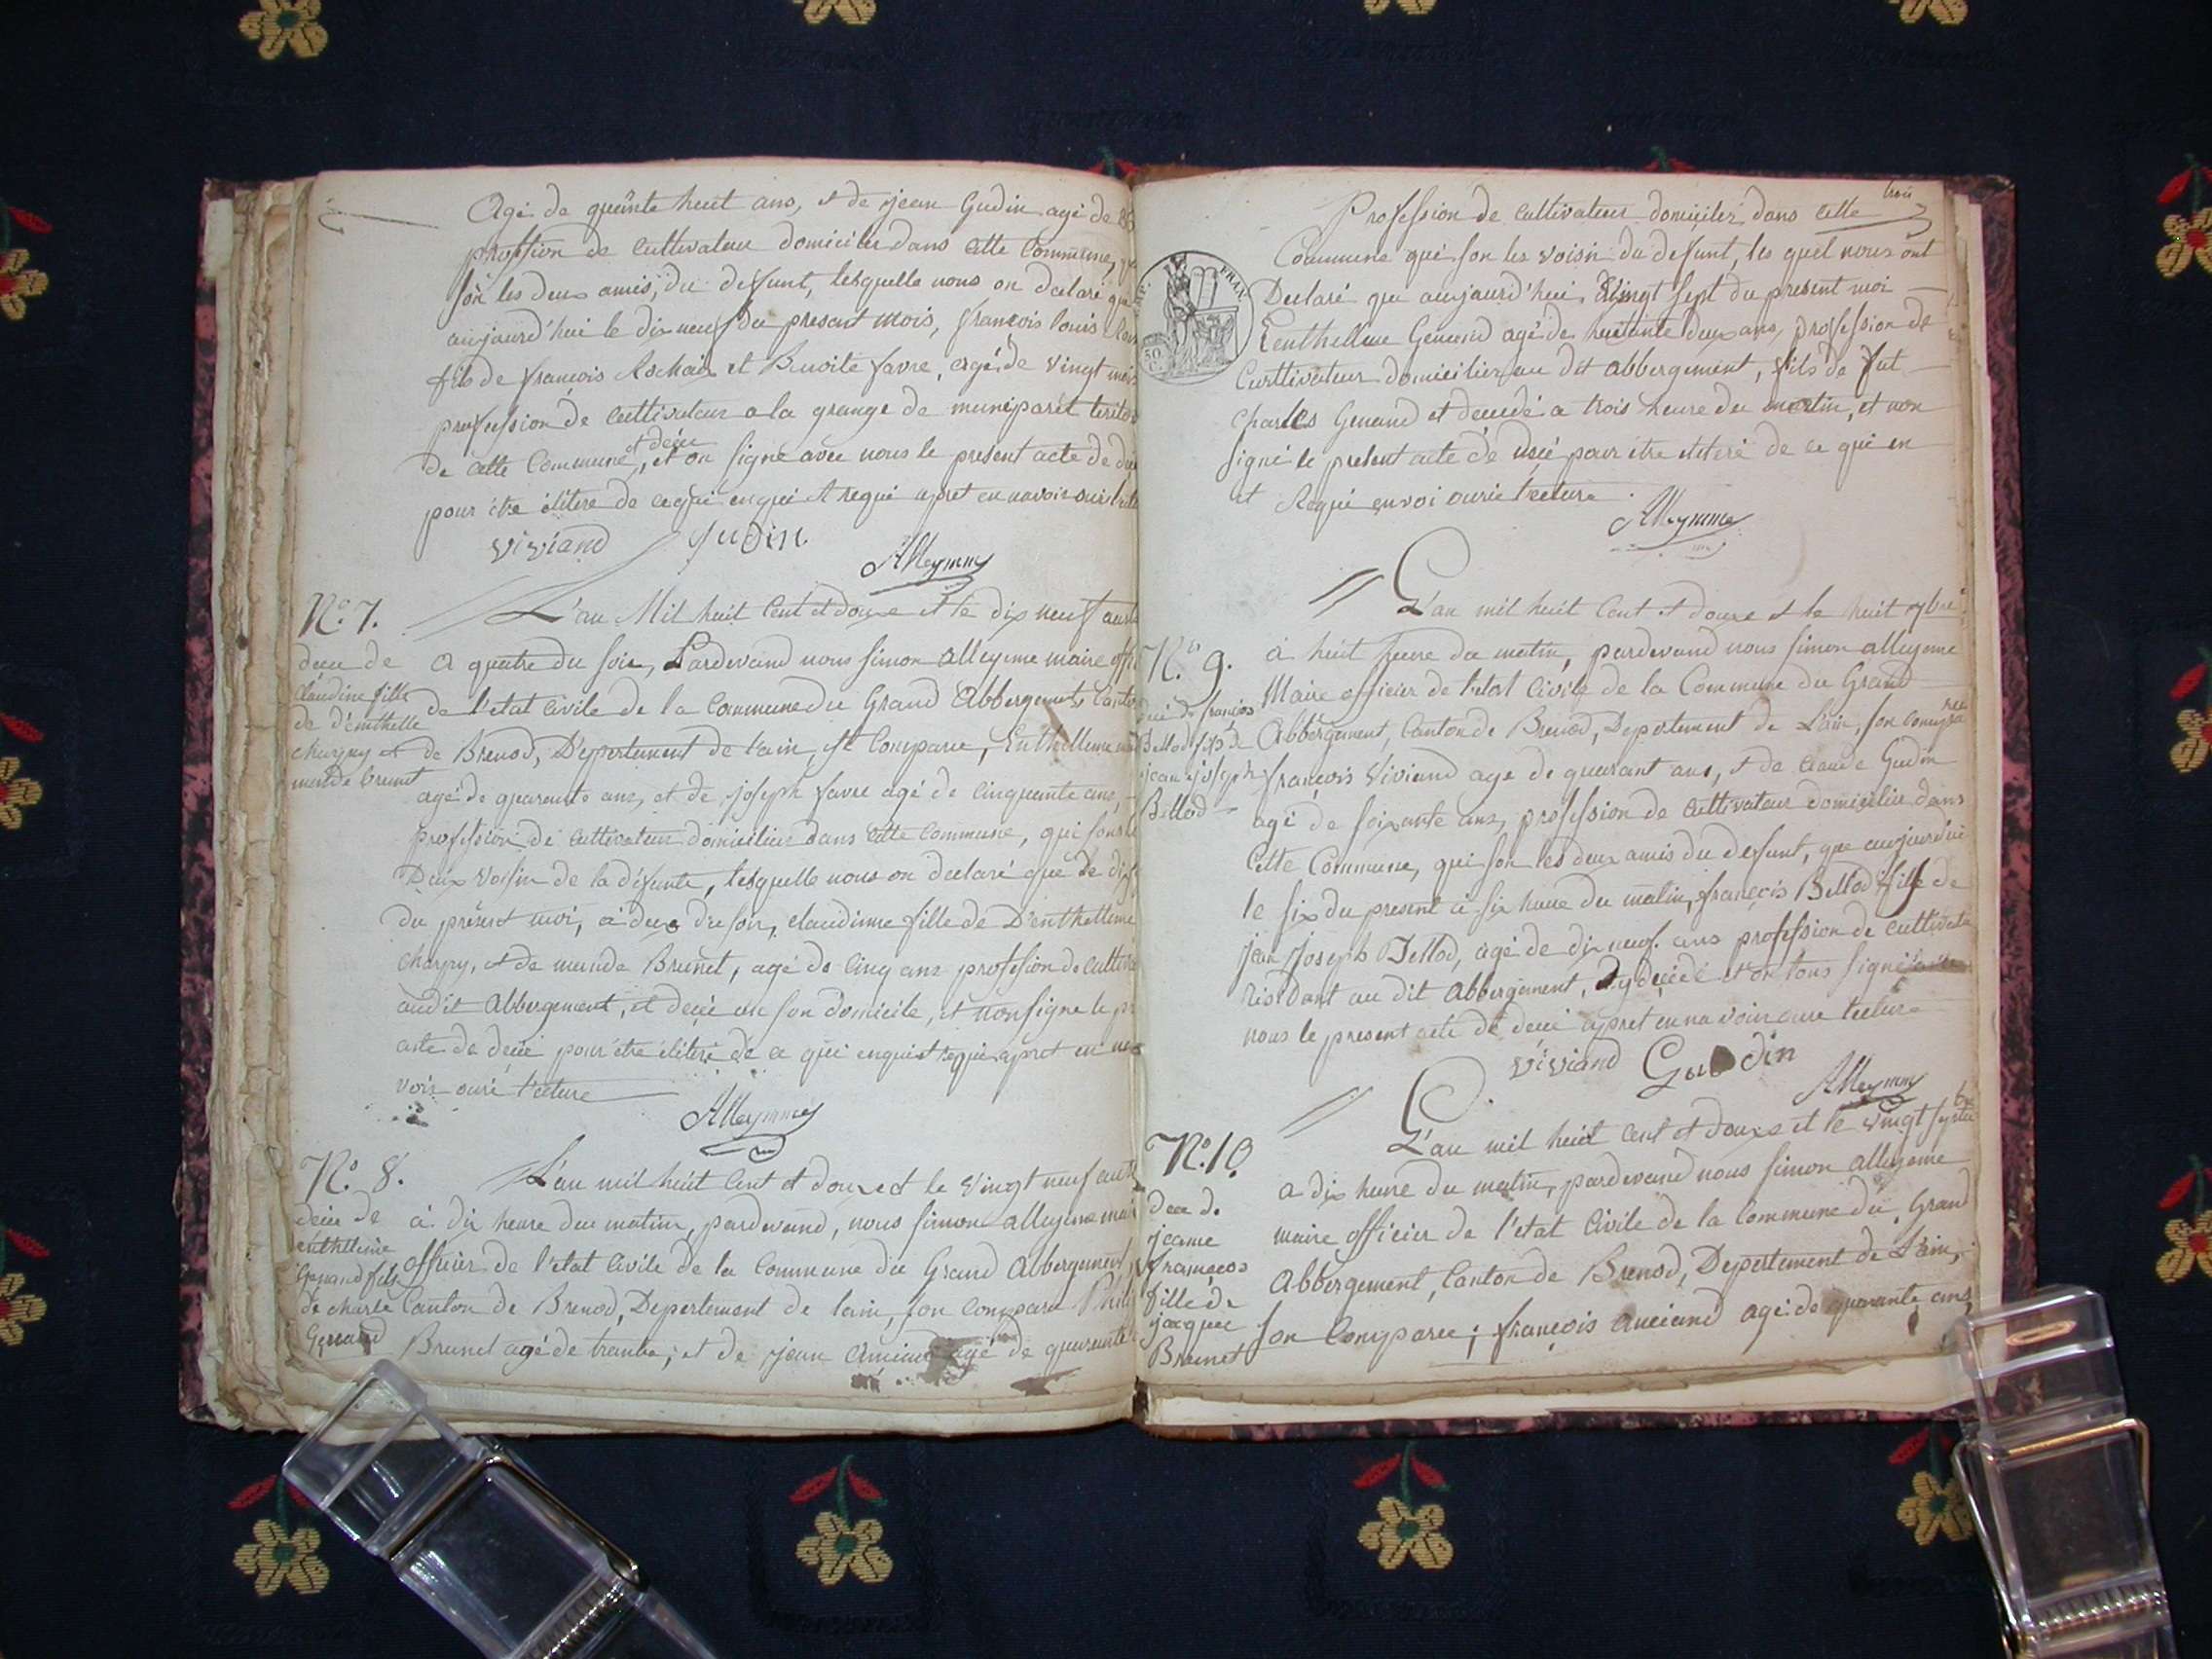 Agé de quaránte huit ans, et de jean Gudin agé de 86
profssion de cultivateur domicilier dans cette Commune,
son les deux amis, du defunt, lesquelle nous on declaré que
aujourd'hui le dix neuf du present mois, françois louis
fils de françois et Benoite favre, agé de vingt mois
profession de cultivateur a la grange de
de cette Commune et décée, et on signé avec nous le present acte de
pour être de ce qui est requi apret en navoir ouie
viviand gudin
Alleymme
N.º 7.
décé de
claudine fille
de d'enthelle
charpy et
mende brunet
L'an Mil huit Cent et douze et le dix neuf
a quatre du soir, Pardevand nous simon alleyme maire
de l'etat civile de la Commune du Grand Abbergement, Canton
de Brenod, Departement de l'ain, Comparu, Enthelleme
agé de quarente ans, et de joseph favre agé de cinquente ans,
profession de cultivateur domicilier dans cette Commune, qui son
Deux voisin de la défunte, lesquelle nous on declaré que le dix
du présent moi, a deux du soir, claudinne fille de D'enthelleme
charpy, et de mende Brunet, agé de cinq ans profession de
audit Abbergement, et decée en son domicile, et non signe le
acte de décé pour être de ce qui requi apret en
voir ouie l'ecture
Alleymme
N.º 8.
décée de
enthelleme
Genand fils
de charle
Genand
L'an mil huit Cent et douze et le vingt neuf
à dix heure du matin, pardevand, nous simon alleyme
officier de l'etat civile de la Commune du Grand Abbergement,
Canton de Brenod, Departement de lain, son comparu
Brunet agé de trante, et de jean agé de quarante
trois
Profession de cultivateur domicilier dans cette
Commune qui son les voisin du defunt, les quel nous ont
Declaré que aujourd'hui vingt sept du present moi
Genand agé de deux ans, profession de
Curttivateur domicilier au dit abbergement, fils de fut
charles Genand et décedé a trois heure du matin, et non
signé le present acte de pour être de ce qui en
et Requi ourie lecture
Alleymme
FRAN.
50
C.
N.º 9.
décé de françois
Bellod fils de
jean joseph
Bellod
L'an mil huit Cent et douze et le huit 7bre
à huit heure du matin, pardevand nous simon alleyme
Maire officier de l'etat Civile de la Commune du Grand
Abbergement, Canton de Brenod, Depertement de L'ain, son comparu
françois Viviand age de quarant ans, et de claude Gudin
agé de soixante ans, profession de cultivateur domicilier dans
Cette Commune, qui son les deux amis du defunt, que aujourdui
le six du present a six heure du matin, françois Bellod fils de
jean joseph Bellod, agé de dix neuf ans profession de
residant au dit Abbergement, décédé et on tous signé avec
nous le present acte de décé apret en na voir oure lecture
viviand Gudin
Alleymme
N.º 10
décé de
jeanne
françois
fille de
jacque
Brunet
L'an mil huit Cent et douze et le vingt
a dix heure du matin, pardevand nous simon alleyme
maire officier de l'etat civile de la Commune du Grand
Abbergement, Canton de Brenod, Depertement de L'ain,
son Comparu; françois anciand agé de quarante ans,